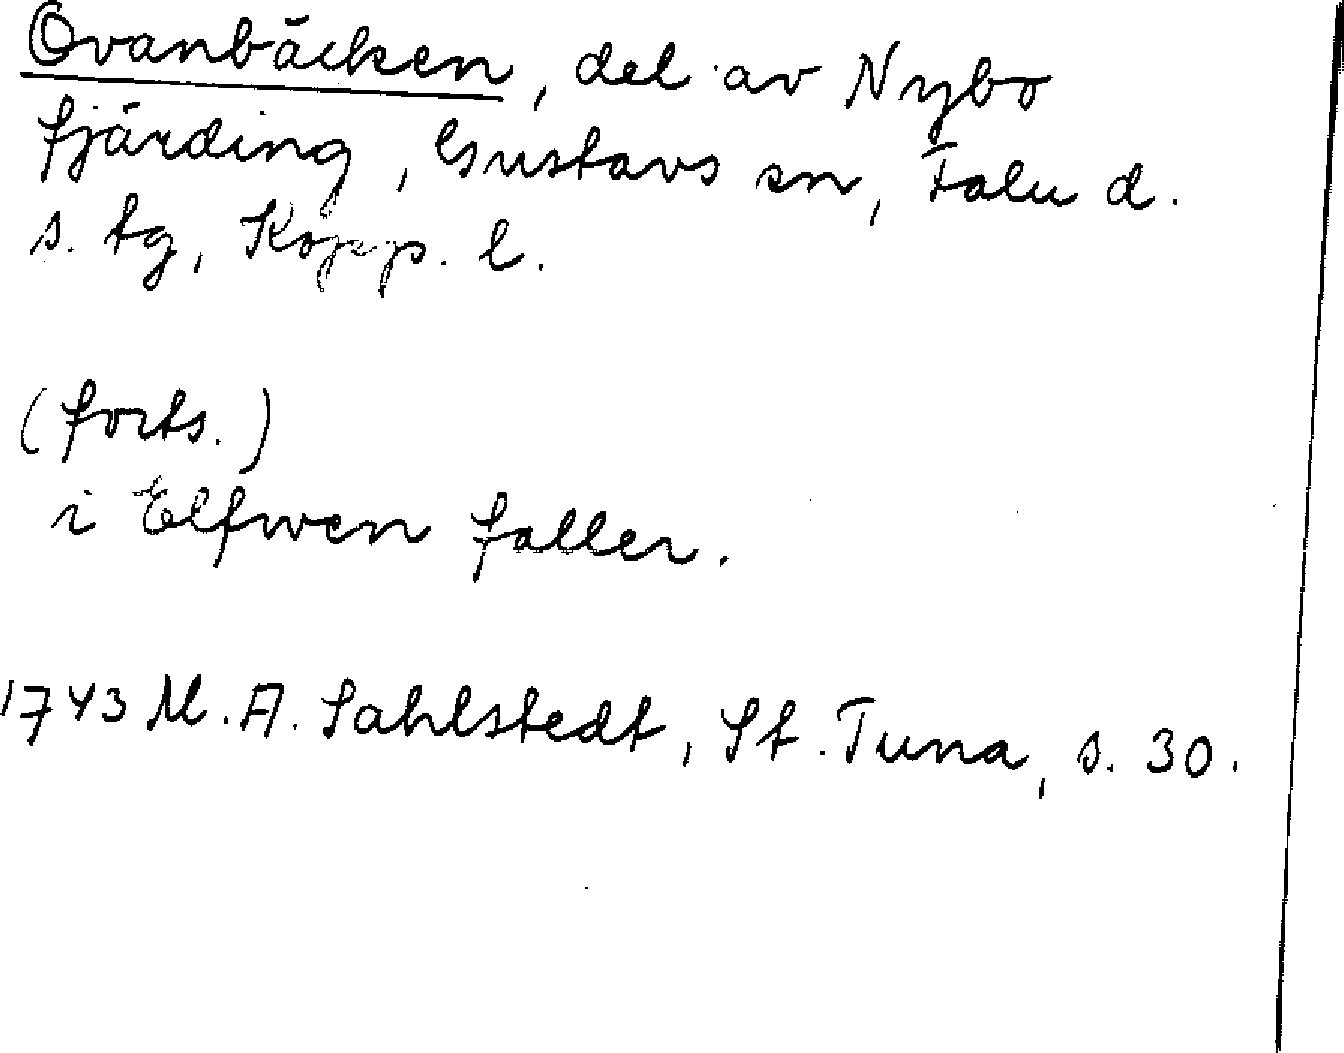 Ovanbäcken, del av Nybo
fjärding, Gustavs sn, Falu d.
s. tg, Kopp. l.
(forts.)
i Elfwen faller.
1743 M. A. Sahlstedt, St. Tuna, s. 30.